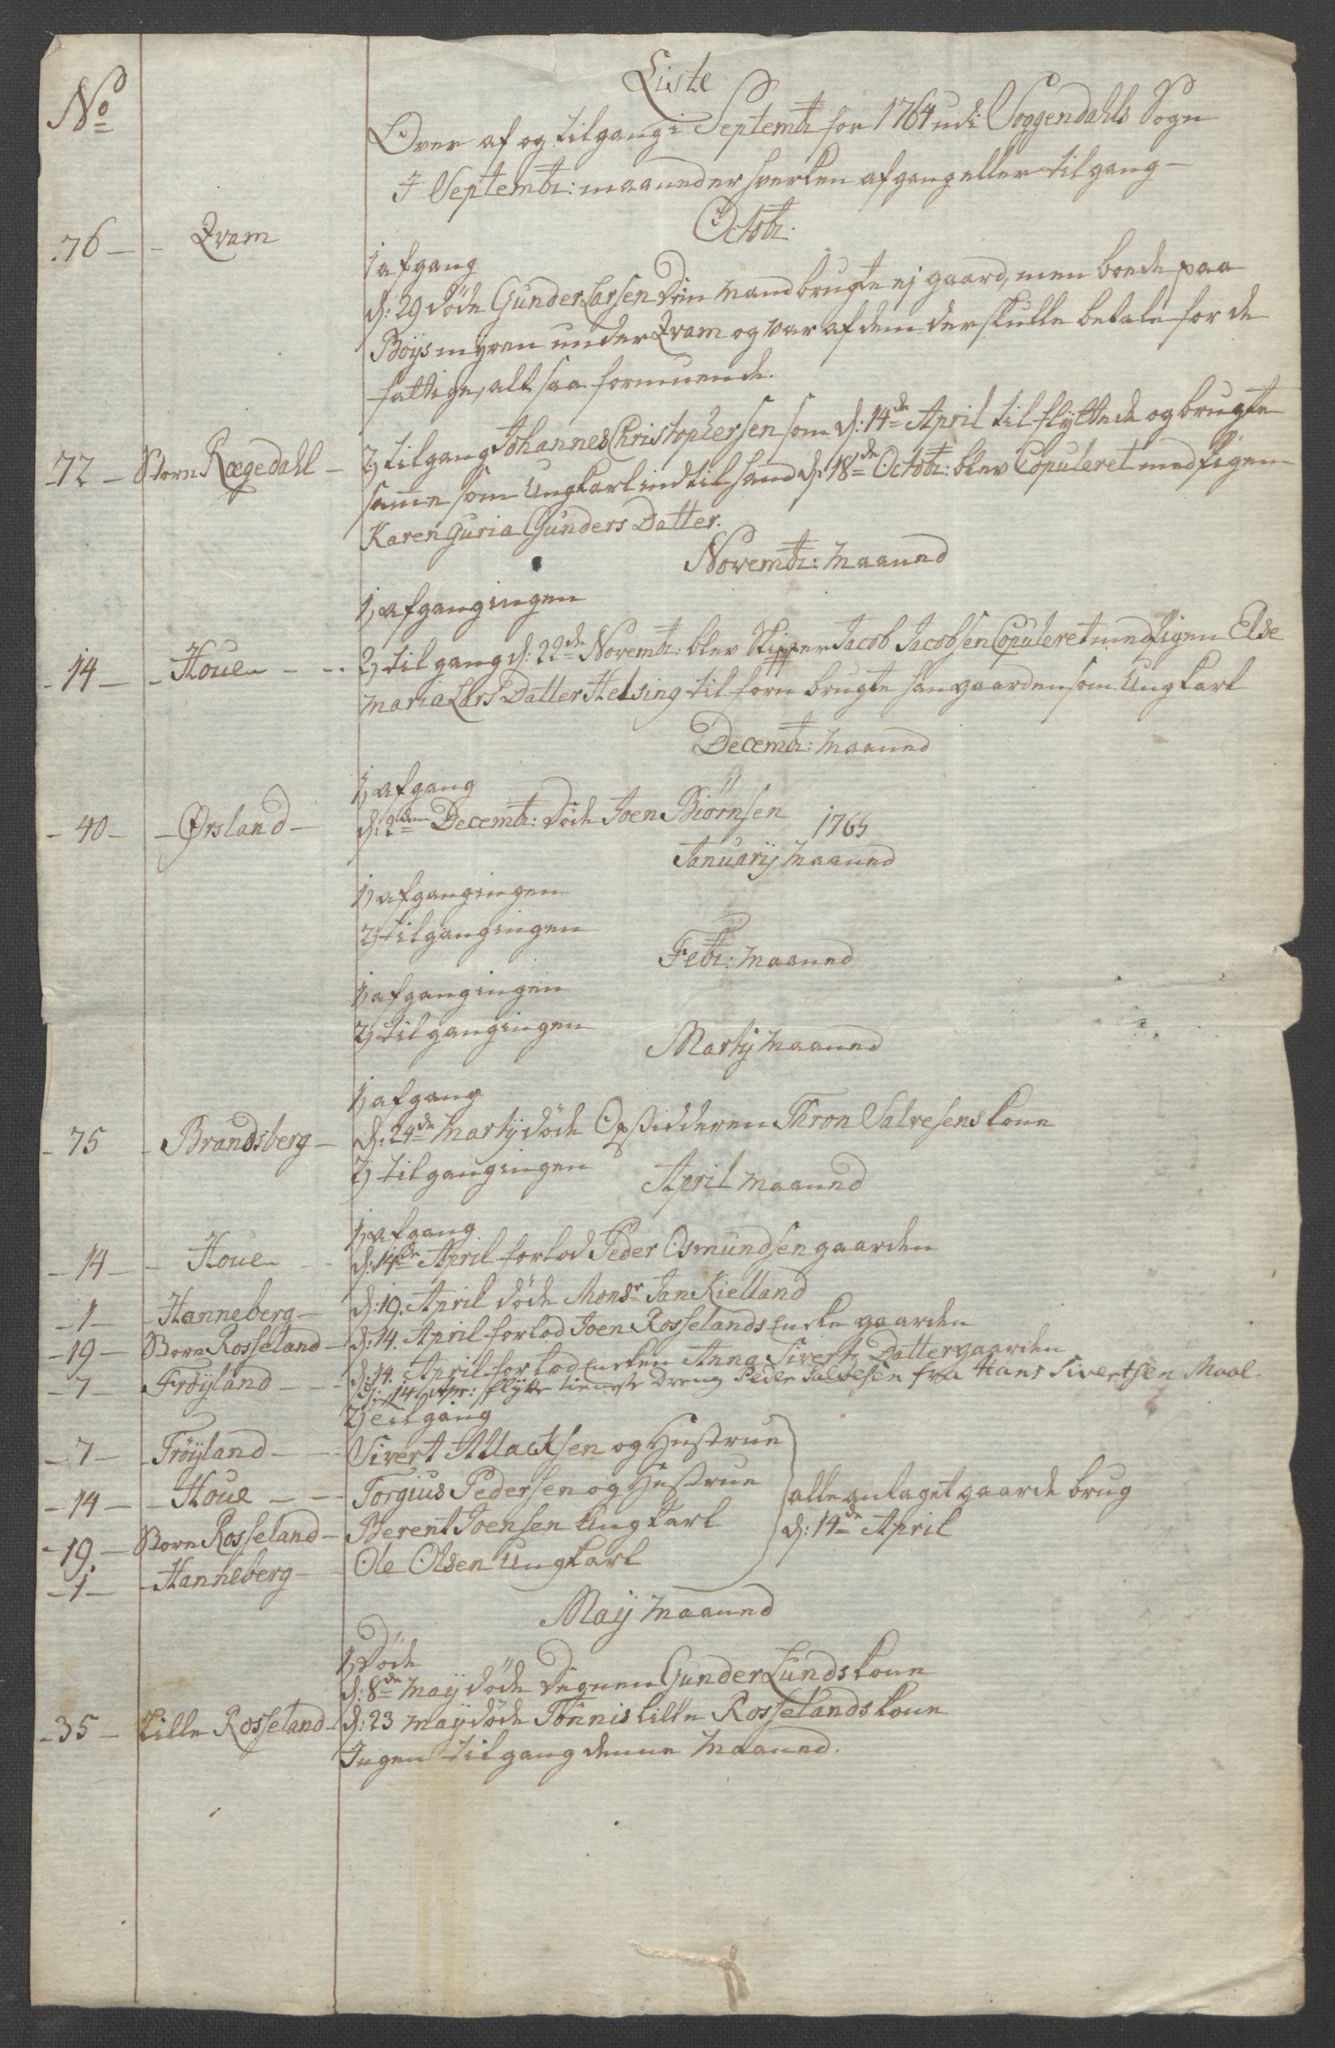 No
Liste
Over af og tilgang i Septembr: for 1764 udi Soggendahls Sogn
I Septembr: maaned er hverken afgang eller tilgang —
Octobr:
1) afgang
76 — Qvam d: 29 döde Gunder Larsen Din mand brugte ej gaard, men boede paa
Böysmyren under Qvam og var af dem der skulle betale for de
fattige, alt saa formuende.
72 — Storn Rægedahl — 2) tilgang Johannes Christophersen som d: 14de April tilflyttede og brugte
samme som Ungkarl indtil hand d: 18de Octobr: blev Copuleret med Pigen
Karen Guria Gunders Datter.
Novembr: maaned
1) afgang ingen
14 — Houe — 2) tilgang d: 22de Novembr: blev Skipper Jacob Jacobsen Copuleret med Pigen Else
maria Lars Datter Helsing tilforn brugte han gaarden som Ungkarl
Decembr: maaned
1) afgang
40 — Ørsland — d: 2den Decembr: döde Joen Biörnsen
1765
Januarij maaned
1) afgang ingen
2) tilgang ingen
Febr: maaned
1) afgang ingen
2) tilgang ingen
Martij maaned
1) afgang
75 — Brandsberg — d: 24de Martij döde Opsidderen Thron Salvesens kone
2) tilgang ingen
April maaned
1) afgang
14 — Houe — d: 14de April forlod Peder Osmundsen gaarden
1 — Hanneberg — d: 19. April döde Monsr Jan Kielland
19 — Storn Rosseland — d: 14. April forlod Joen Rosselands Enke gaarden
7 — Fröyland — d: 14. April forlod Enken Anna Sivertz Datter gaarden
d: 14 Apr: flytte tieneste Dreng Peder Salvesen fra Hans Sivertsen Moal
2) Tilgang
7 — Fröyland — Sivert Allacksen og Hustrue
14 — Houe — Torgius Pedersen og Hustrue
19 — Storn Rosseland — Berent Joensen Ungkarl
1 — Hanneberg — Ole Olsen Ungkarl
alle antaget gaarde brug
d: 14de April
May maaned
1) Döde
d: 8de may döde Degnen Gunder Lunds kone
35 — Lille Rosseland — d: 23 may döde Tönnis Lille Rosselands kone
Ingen tilgang denne maaned.